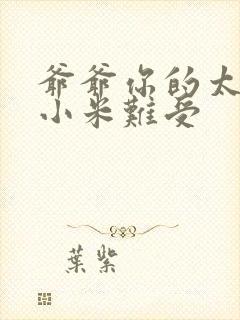 爺爺你的太
小米難受
葉紫